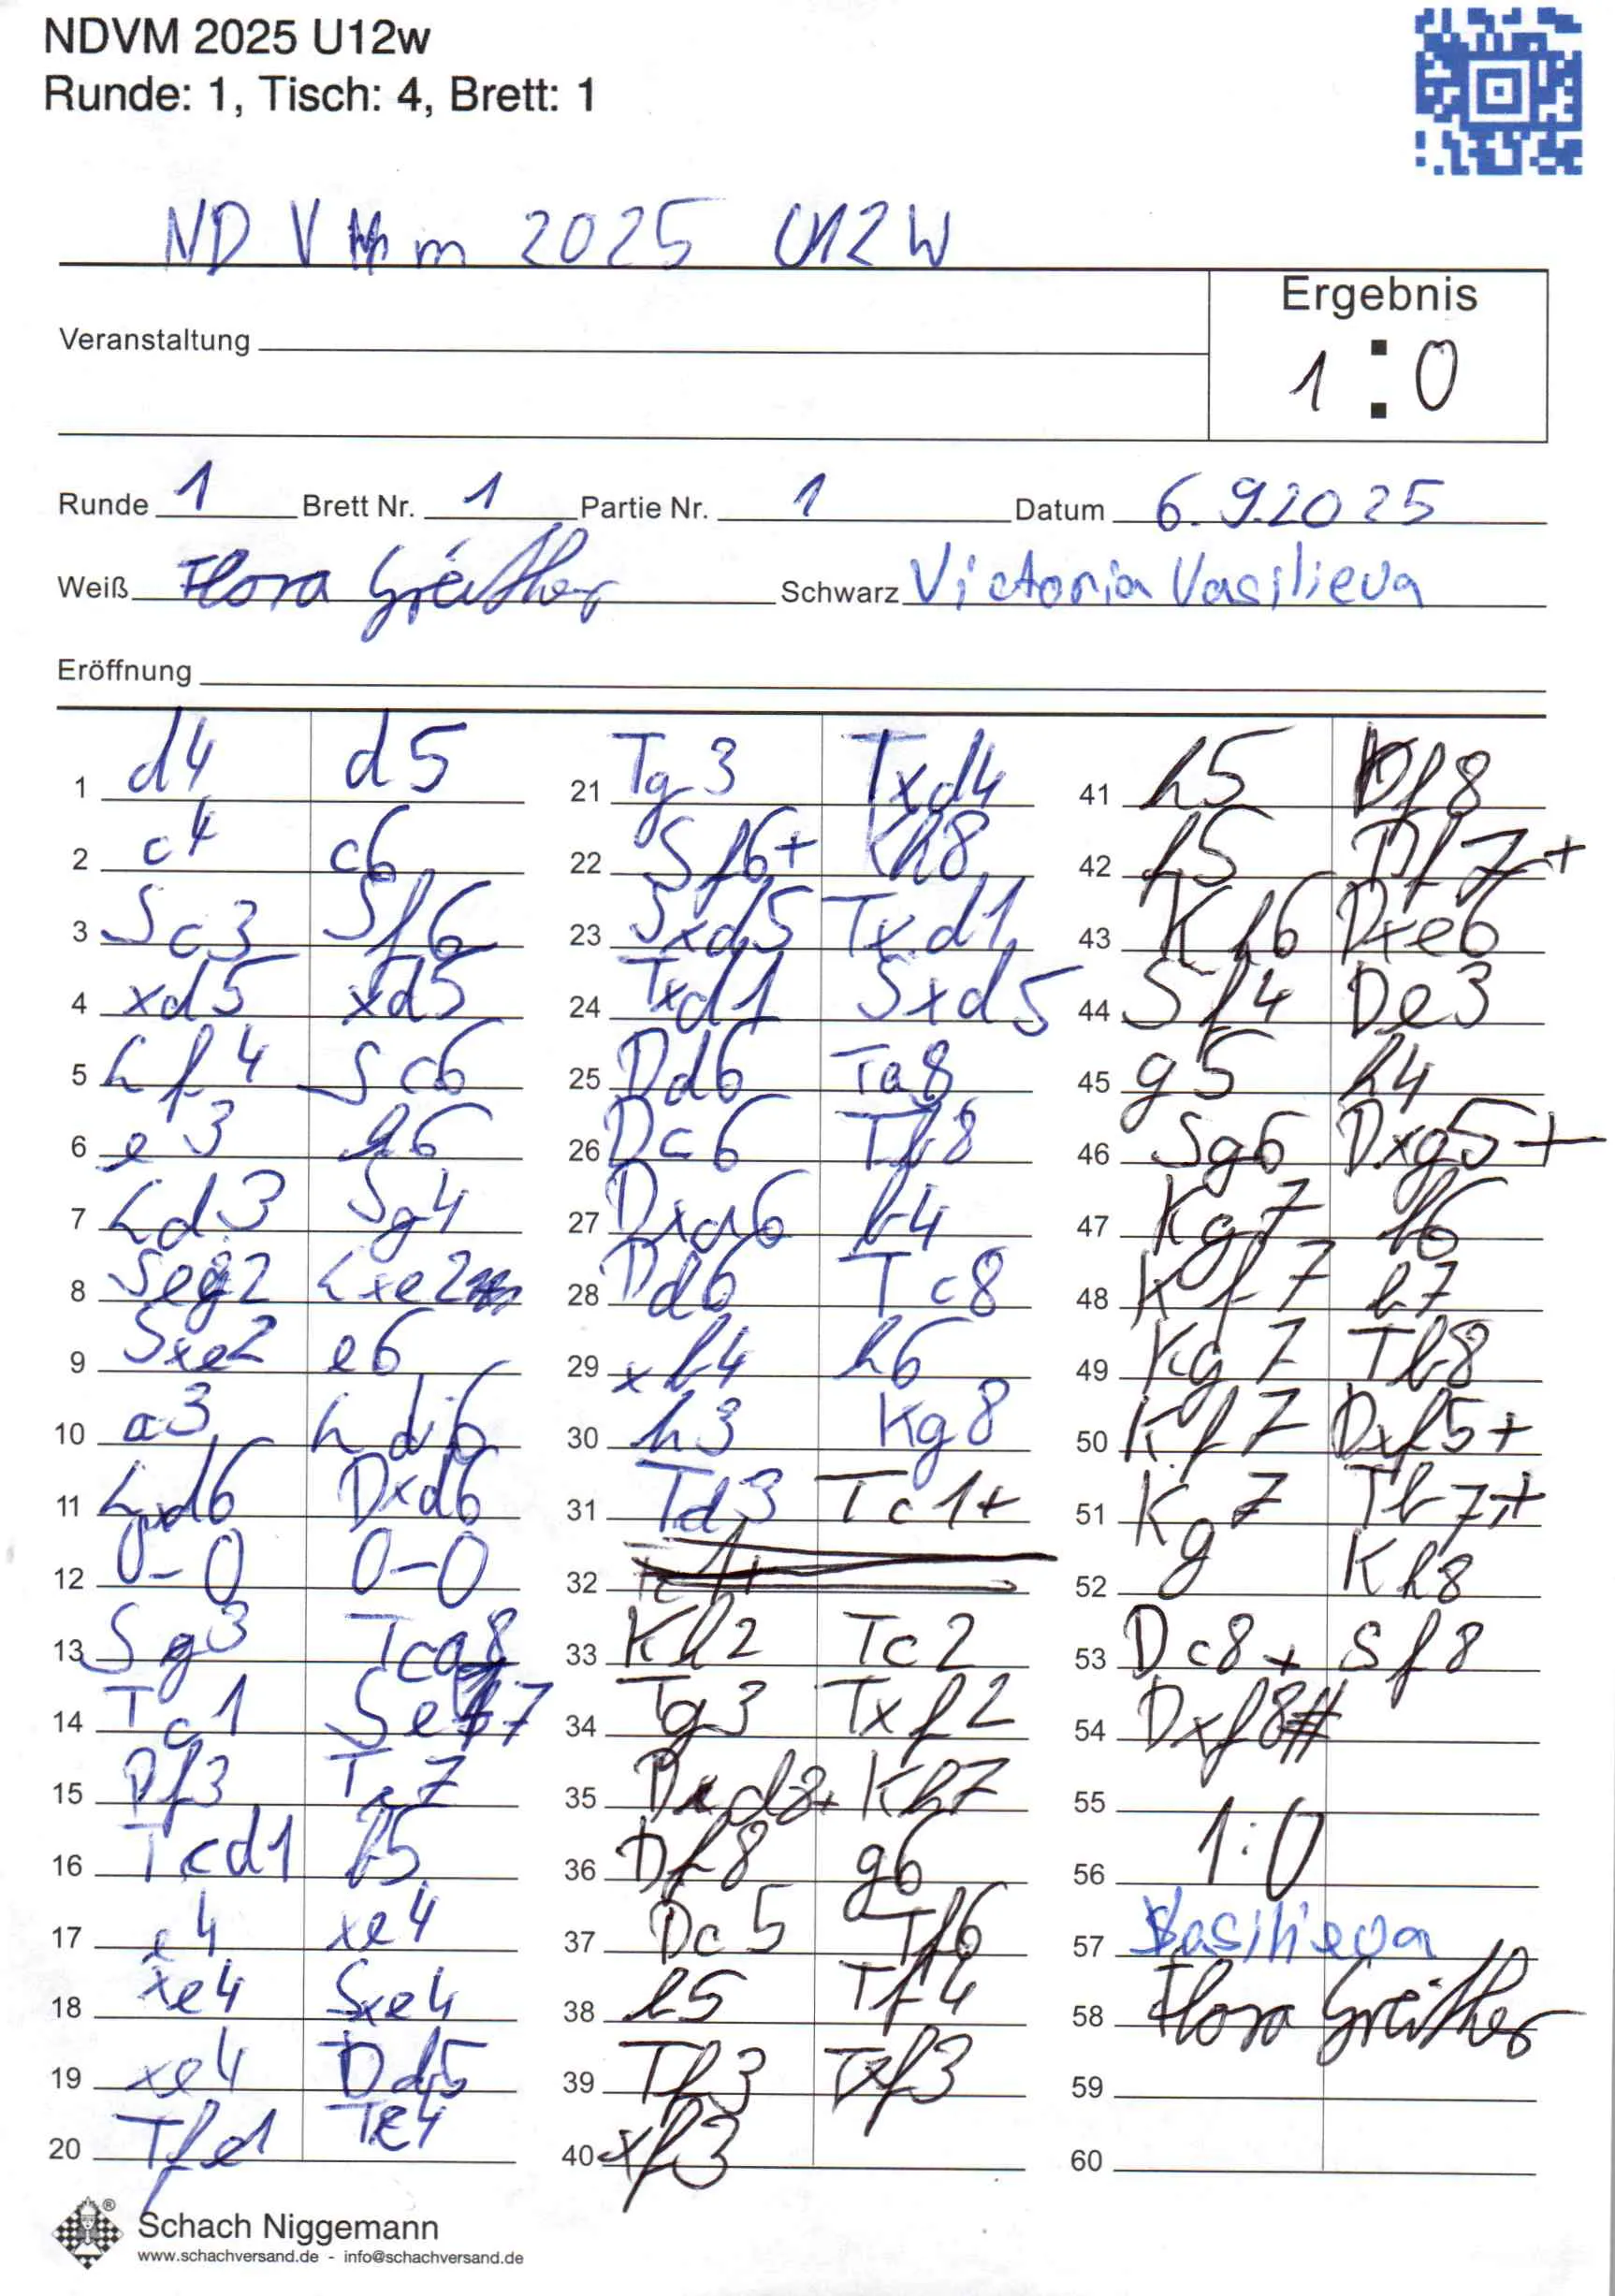 NDVM 2025 U12w
Runde: 1, Tisch: 4, Brett: 1
ND V m 2025 U12W
Ergebnis
Veranstaltung
1 : 0
Runde 1 Brett Nr. 1 Partie Nr. 1 Datum 6.9.2025
Weiß Flora Gréither Schwarz Victoria Vasilieva
Eröffnung
1 d4 d5
2 c4 c6
3 Sc3 Sf6
4 xd5 xd5
5 Lf4 Sc6
6 e3 a6
7 Ld3 Sg4
8 Seg2 Lxe2
9 Sxe2 e6
10 a3 Ld6
11 Lxd6 Dxd6
12 0-0 0-0
13 Sg3 Tca8
14 Tc1 Se7
15 Df3 Tc7
16 Tcd1 b5
17 e4 xe4
18 xe4 Sxe4
19 xe4 Dd5
20 Tfe1 Tc4
21 Tg3 Txd4
22 Sf6+ Kh8
23 Sxd5 Txd1
24 Txd1 Sxd5
25 Dd6 Ta8
26 Dc6 Tb8
27 Dxa6 b4
28 Dd6 Tc8
29 xb4 h6
30 h3 Kg8
31 Td3 Tc1+
32
33 Kh2 Tc2
34 Tg3 Txf2
35 Dxd8+ Kh7
36 Df8 g6
37 Dc5 Tf6
38 b5 Tf4
39 Tf3 Txf3
40 xf3
41 h5 Df8
42 h5 Df7+
43 Kh6 Dxe6
44 Sf4 De3
45 g5 h4
46 Sg6 Dxg5+
47 Kg7 b6
48 Kf7 h7
49 Kg7 Tb8
50 Kf7 Dxf5+
51 Kg7 Tb7+
52 Kh8
53 Dc8+ Sf8
54 Dxf8#
55
56 1:0
57 Vasilieva
58 Flora Gréither
59
60
Schach Niggemann
www.schachversand.de - info@schachversand.de